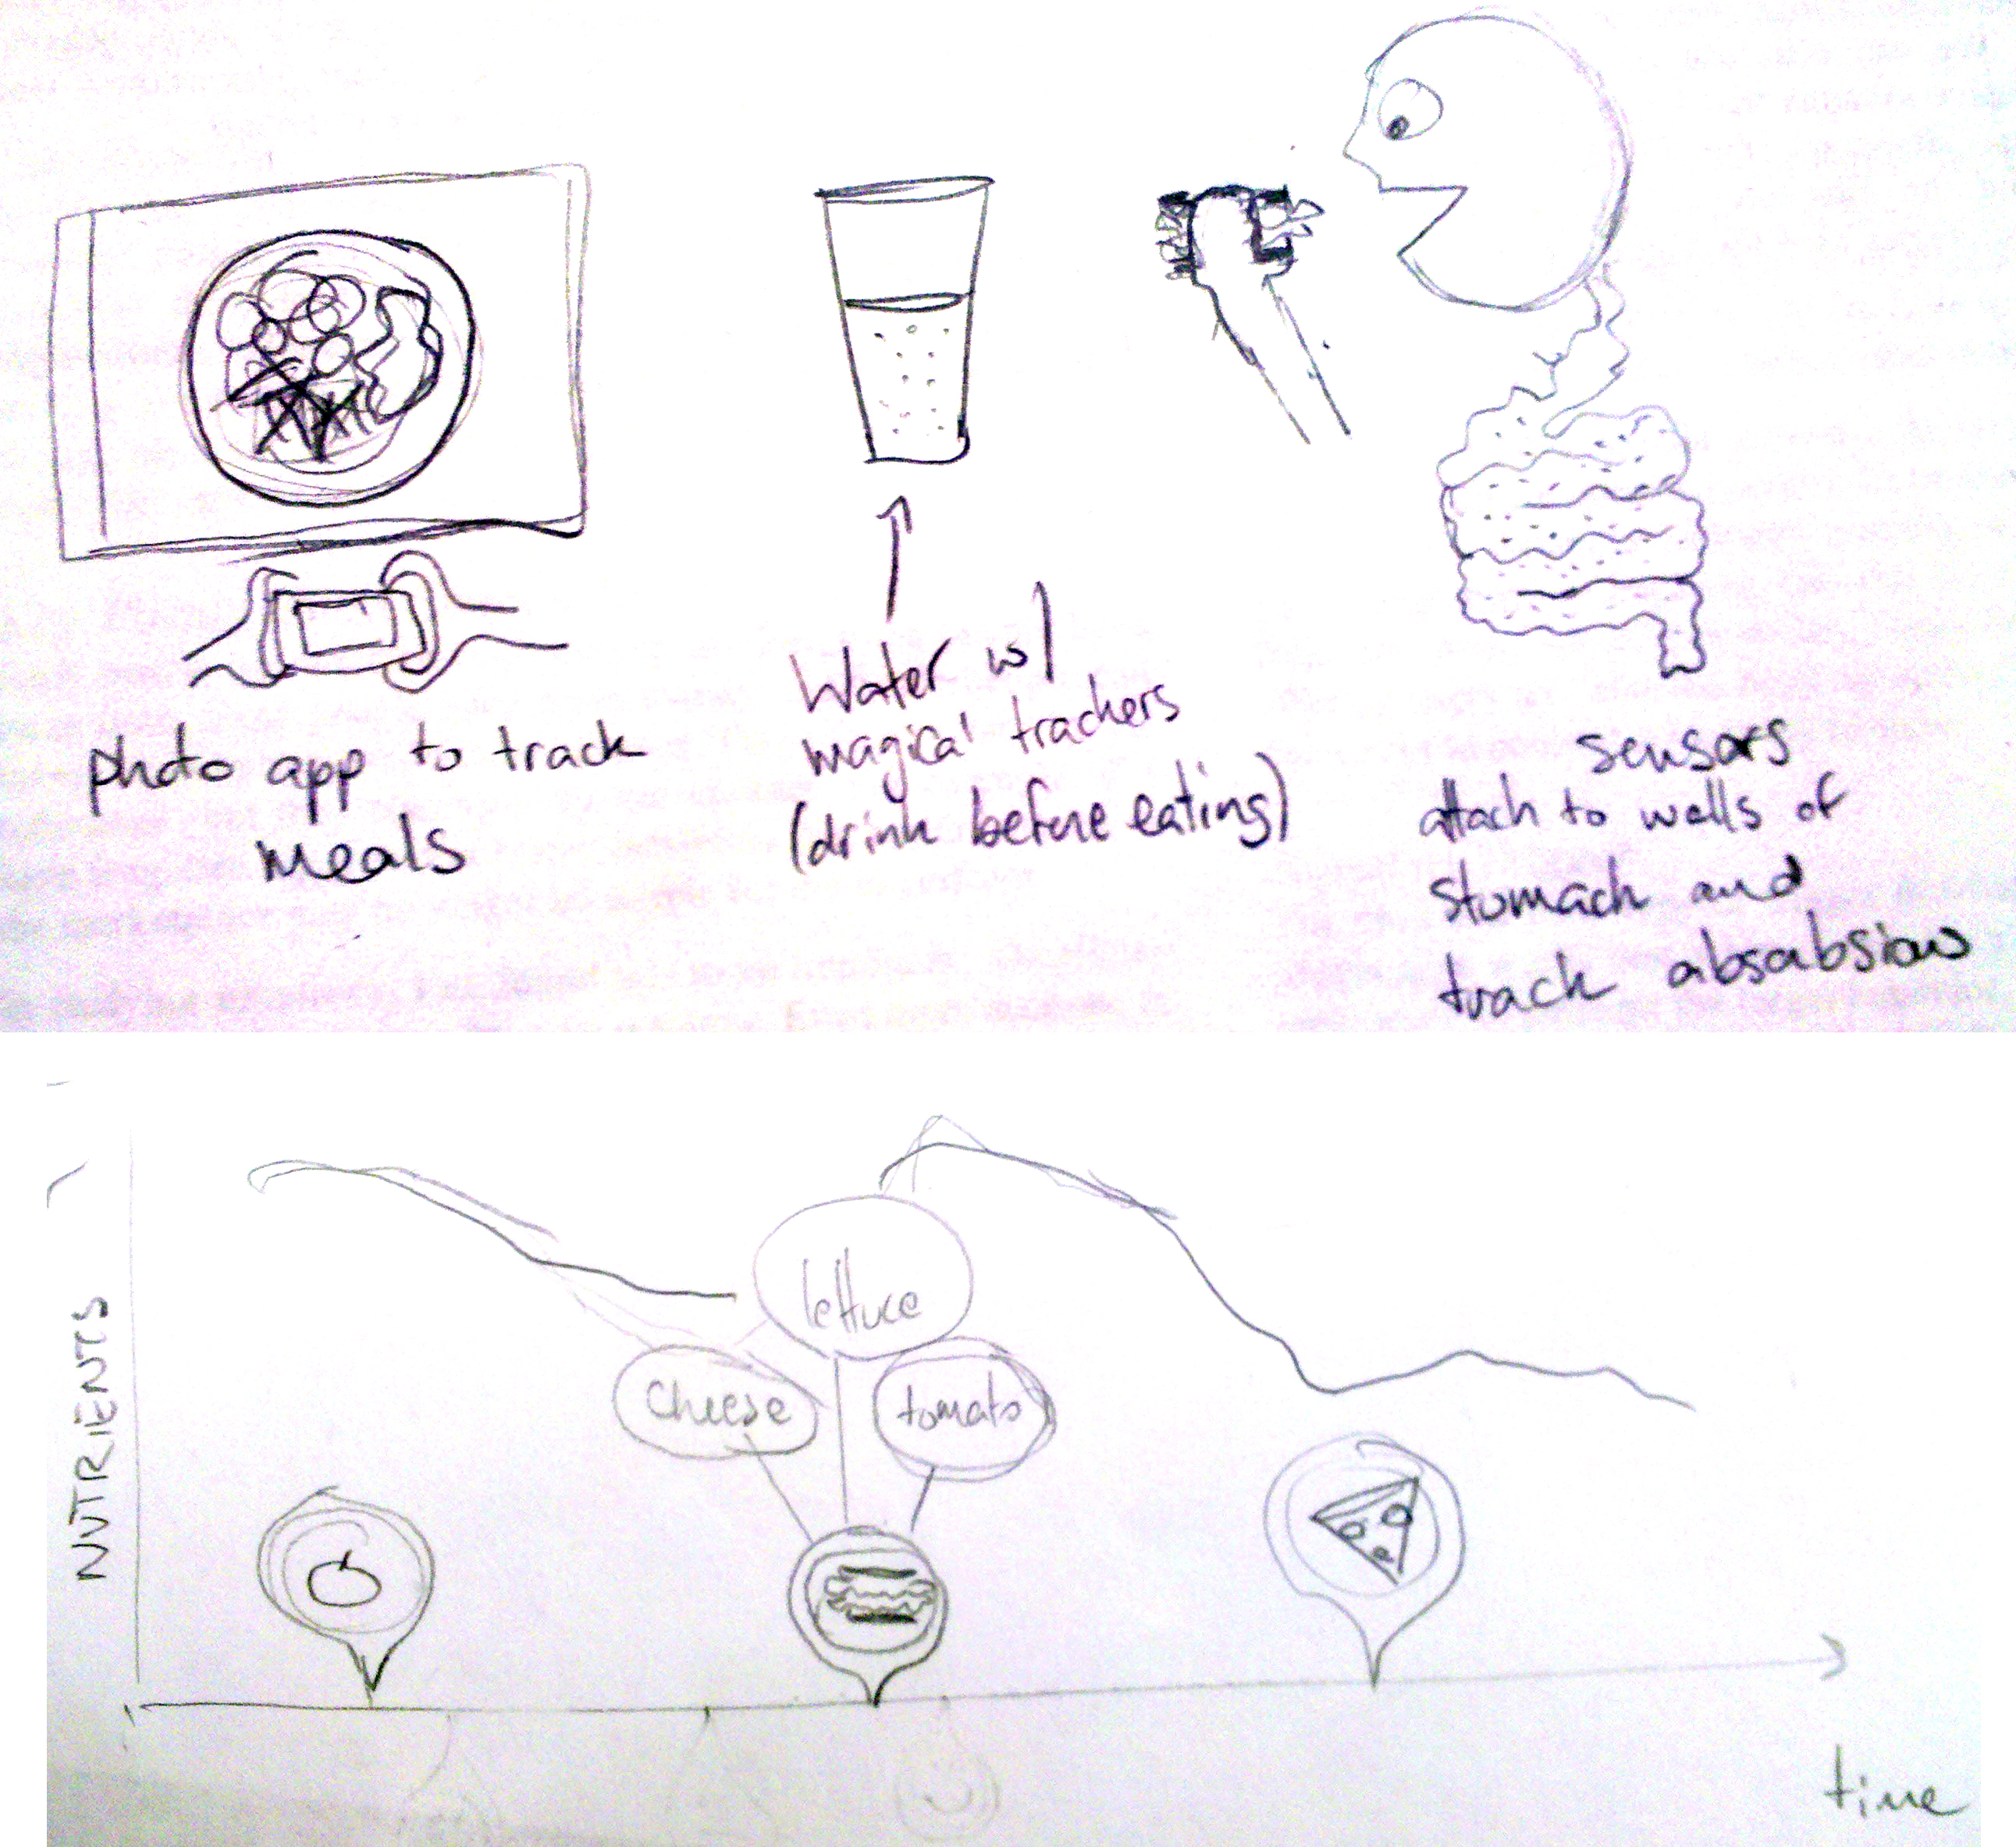 photo app to track
meals
Water w/
magical trackers
(drink before eating)
sensors
attach to walls of
stomach and
track absabsion
NUTRIENTS
lettuce
cheese
tomato
time